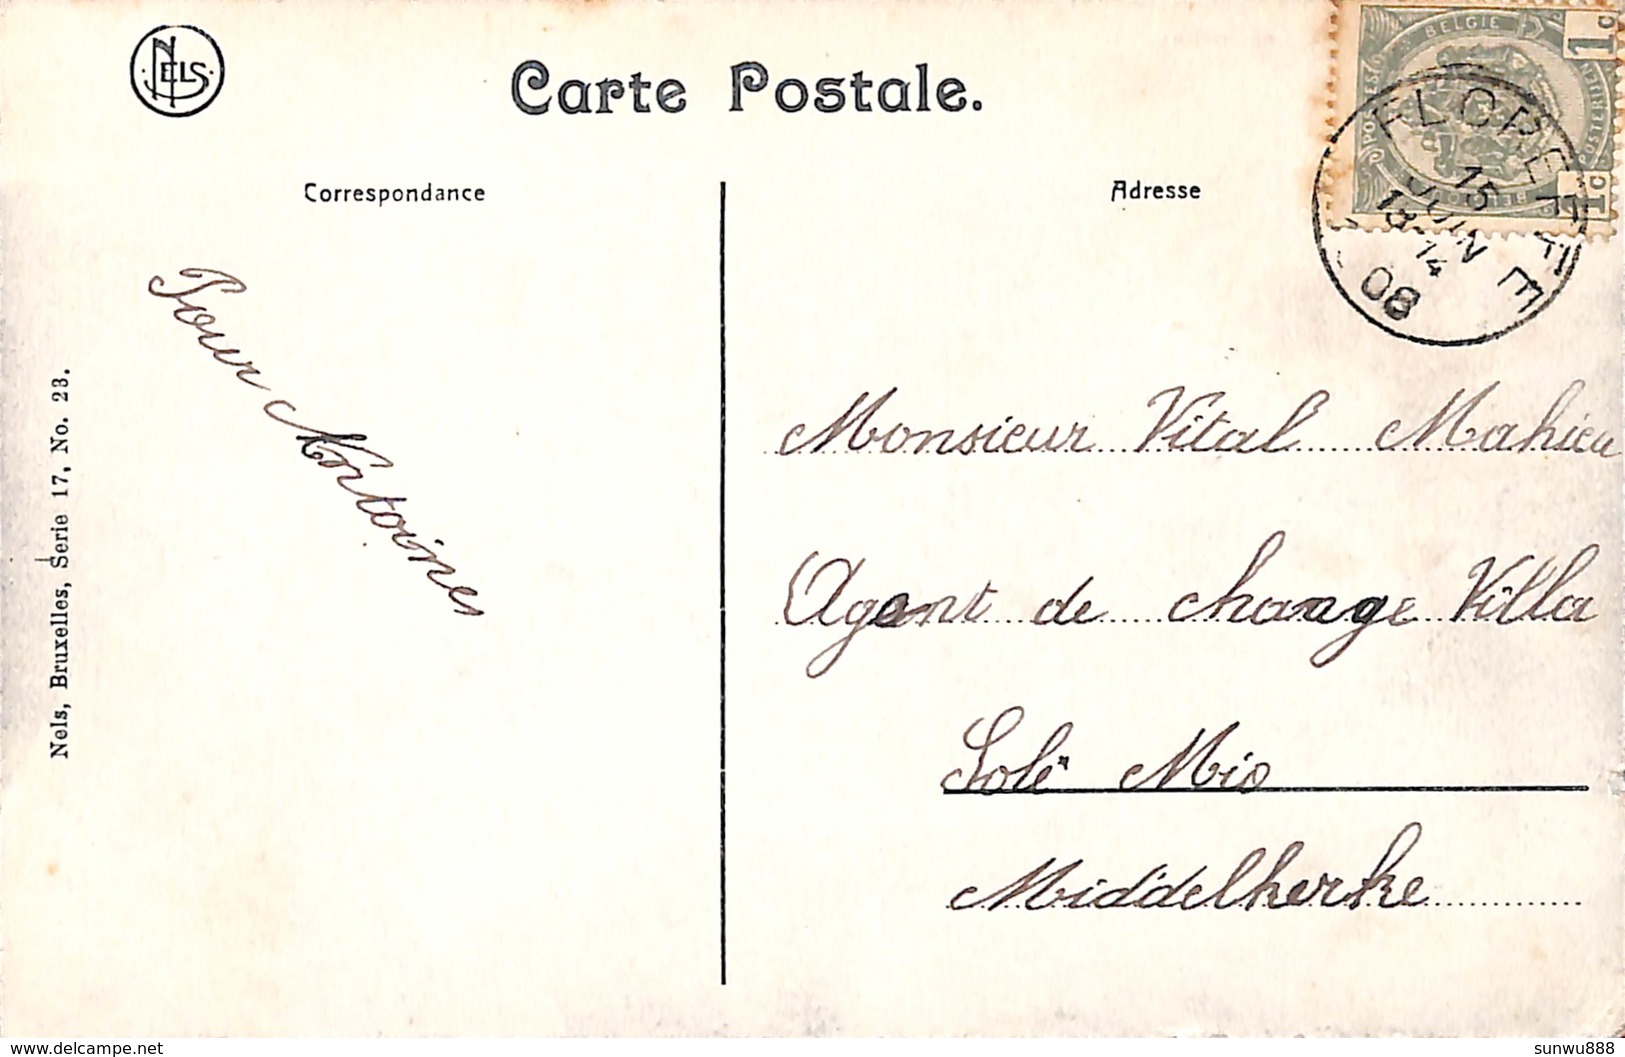 NELS
Carte Postale.
Correspondance
Adresse
BELGIE
1c
1c
POSTERIJEN
POSTES
FLOREFFE
15
JUIN
13-14
08
Pour Antoines
Nels, Bruxelles, Serie 17, No. 23.
Monsieur Vital Mahieu
Agent de change Villa
Solé Mio
Middelherke
delcampe.net
sunwu888